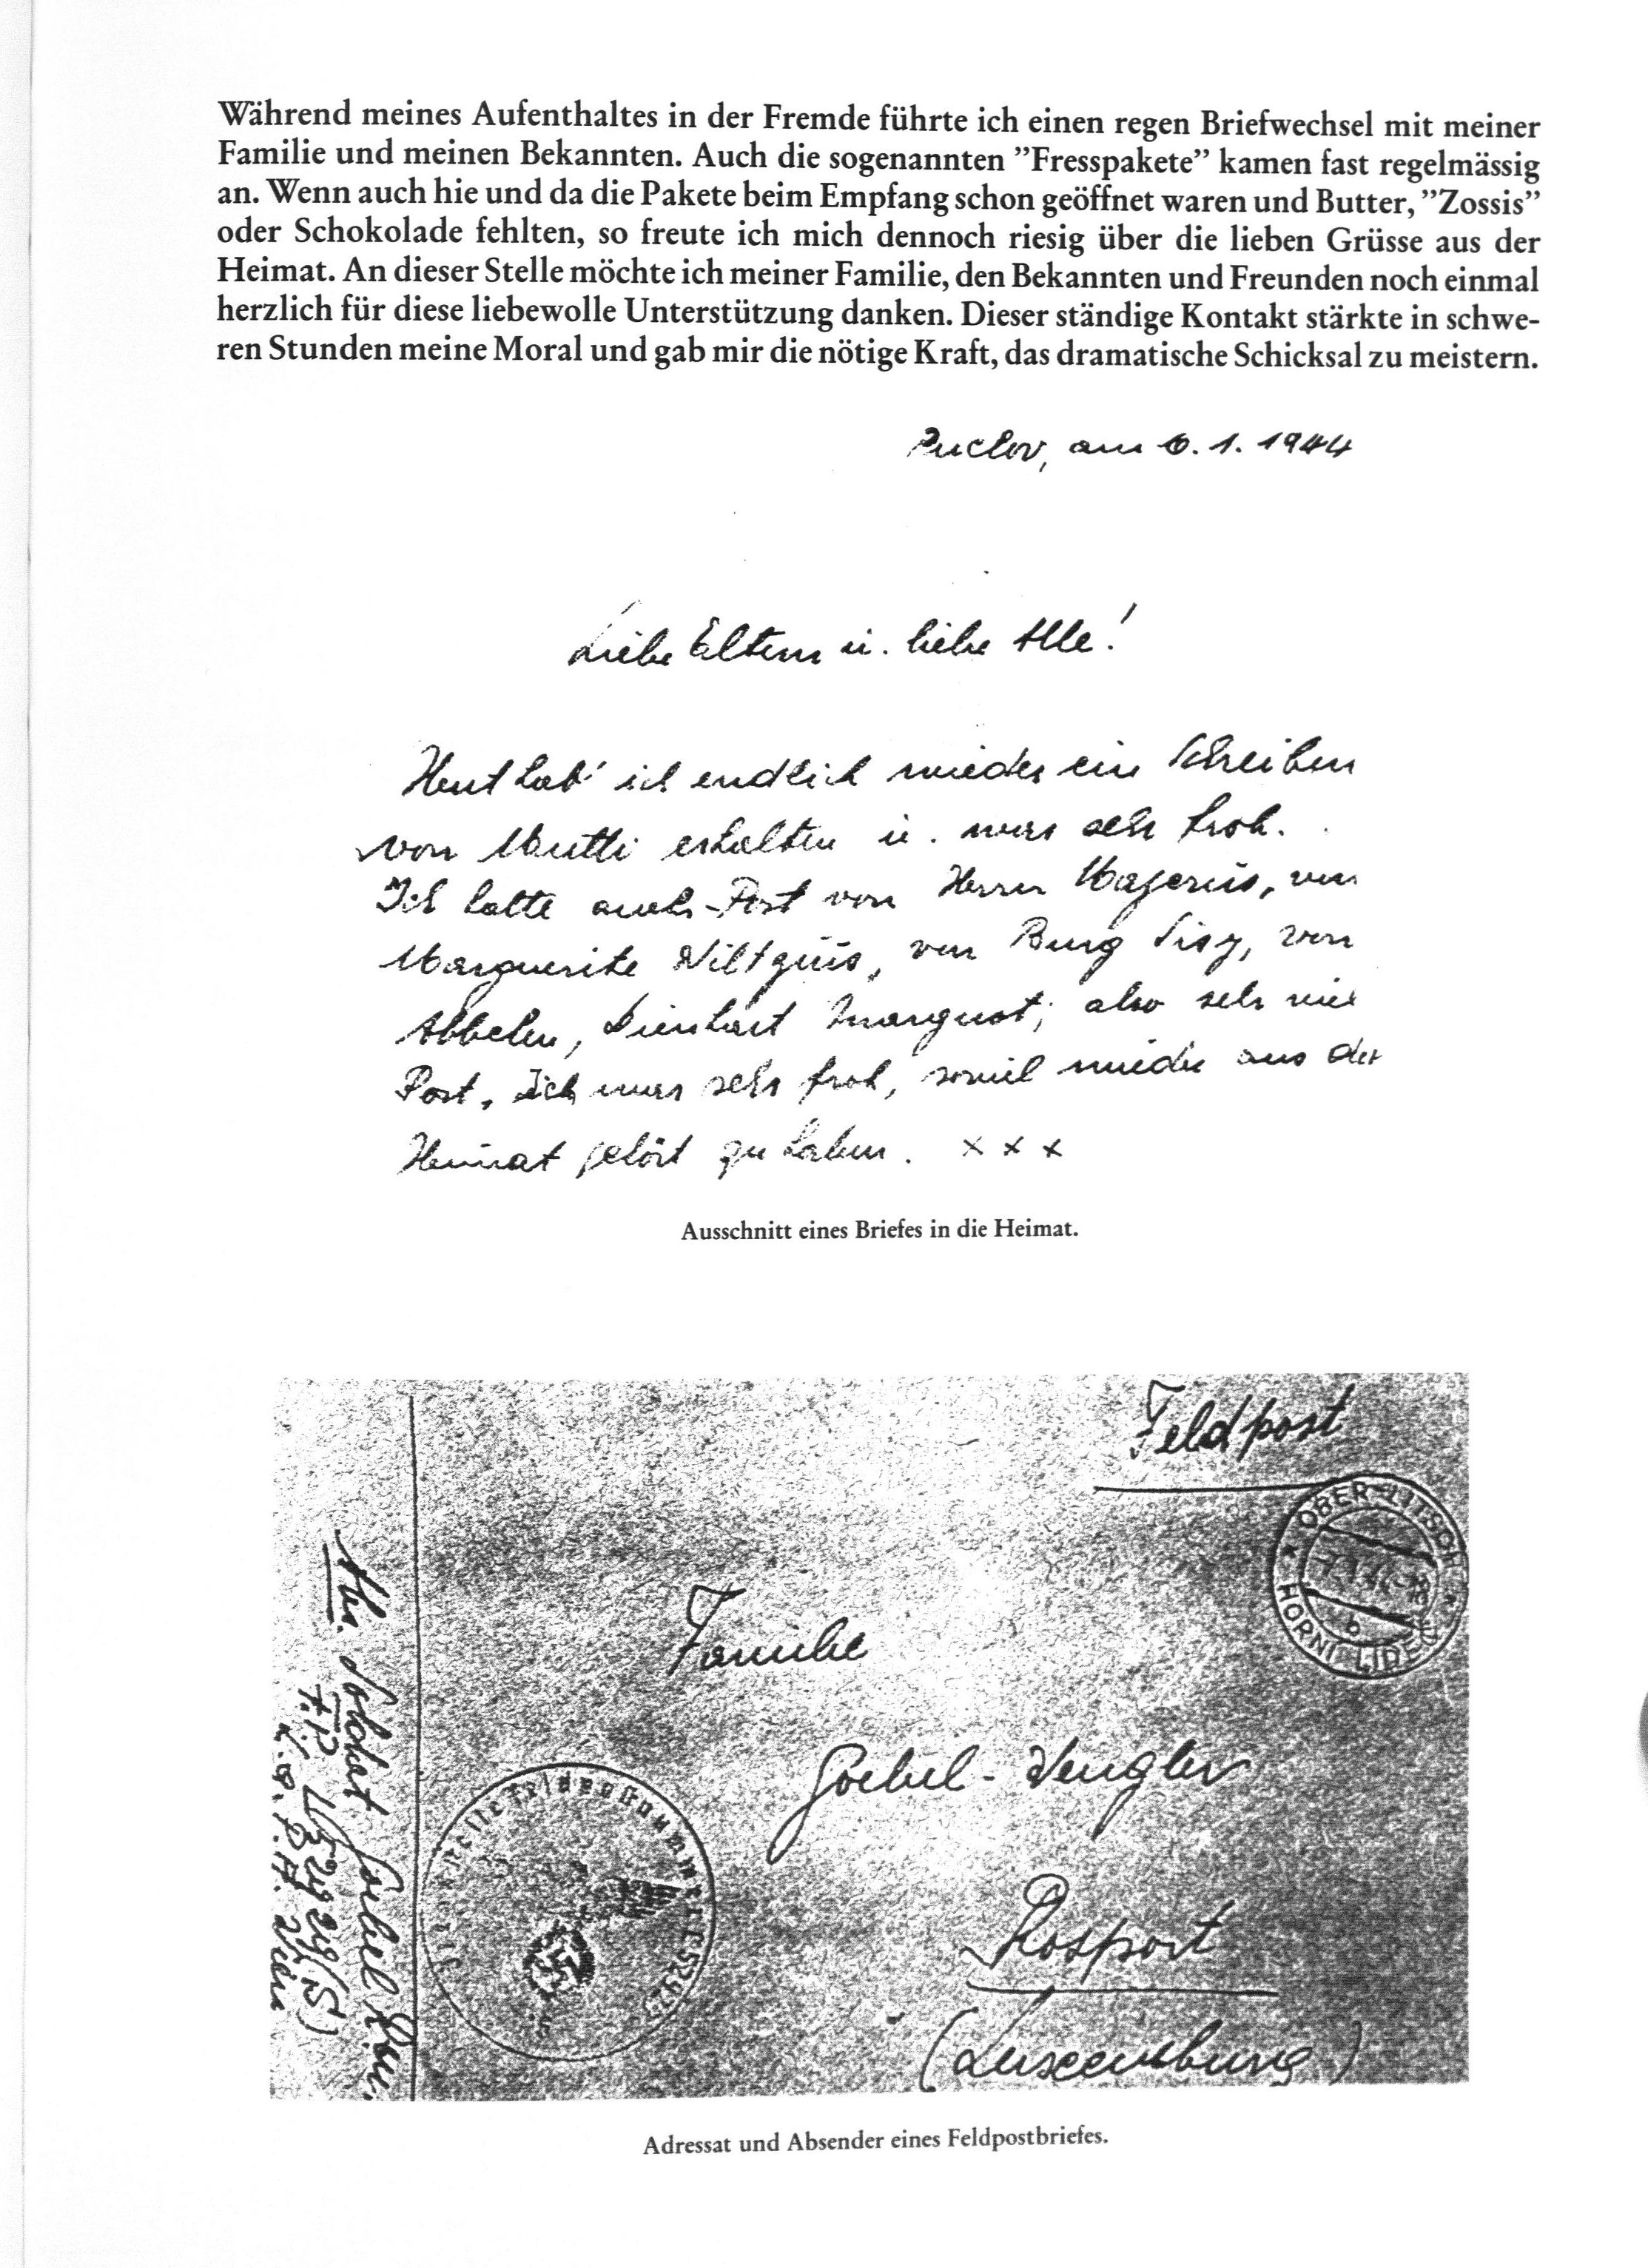 Während meines Aufenthaltes in der Fremde führte ich einen regen Briefwechsel mit meiner
Familie und meinen Bekannten. Auch die sogenannten ”Fresspakete” kamen fast regelmässig
an. Wenn auch hie und da die Pakete beim Empfang schon geöffnet waren und Butter, ”Zossis”
oder Schokolade fehlten, so freute ich mich dennoch riesig über die lieben Grüsse aus der
Heimat. An dieser Stelle möchte ich meiner Familie, den Bekannten und Freunden noch einmal
herzlich für diese liebewolle Unterstützung danken. Dieser ständige Kontakt stärkte in schwe-
ren Stunden meine Moral und gab mir die nötige Kraft, das dramatische Schicksal zu meistern.
am 6.1.1944
Liebe Eltern u. liebe Alle!
Heut hab' ich endlich wieder ein Schreiben
von Mutti erhalten u. war sehr froh.
Ich hatte auch Post von Herrn Majerus, von
Marguerite Wiltgius, von Burg Sisy, von
also sehr viel
Post. Ich war sehr froh, soviel wieder aus der
Heimat gehört zu haben. x x x
Ausschnitt eines Briefes in die Heimat.
Feldpost
OBER-LITSCH
HORNI LIDEČ
b
Familie
Goebel-Wengler
Rosport
(Luxemburg)
Abs. Soldat Goebel
Dienststelle Feldpostnummer
Adressat und Absender eines Feldpostbriefes.